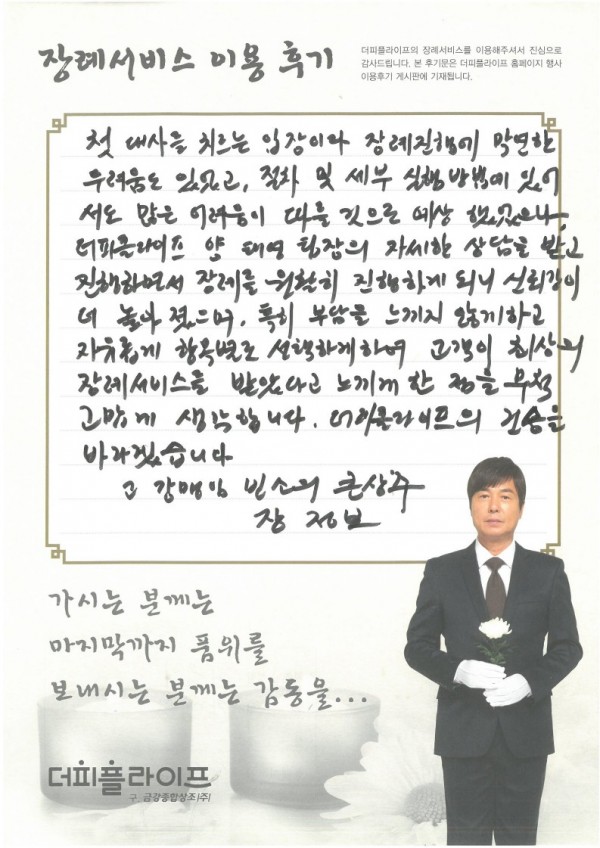 장례서비스 이용 후기
더피플라이프의 장례서비스를 이용해주셔서 진심으로
감사드립니다. 본 후기문은 더피플라이프 홈페이지 행사
이용후기 게시판에 기재됩니다.
첫 대사를 치르는 입장이라 장례진행에 막연한
두려움도 있었고, 절차 및 세부 실행방법에 있어
서도 많은 어려움이 따를 것으로 예상 했었으나,
더피플라이프 양 태연 팀장의 자세한 상담을 받고
진행하면서 장례를 원활히 진행하게 되니 신뢰감이
더 높아 졌으며, 특히 부담을 느끼지 않게하고
자유롭게 항목별로 선택하게하여 고객이 최상의
장례서비스를 받았다고 느끼게 한 점을 무척
고맙게 생각합니다. 더피플라이프의 건승을
바라겠습니다
고 강매임 빈소의 큰상주
장 정보
가시는 분께는
마지막까지 품위를
보내시는 분께는 감동을...
더피플라이프
구. 금강종합상조(주)